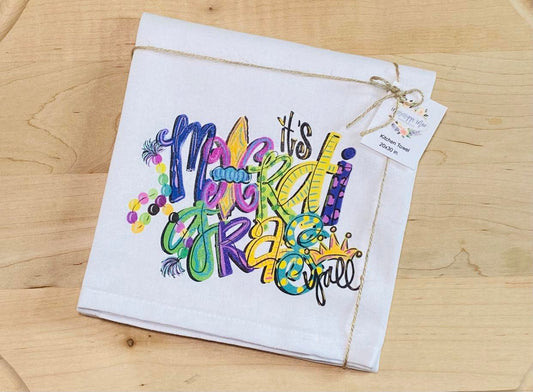 it's
Mardi
gras
y'all
Kitchen Towel
20x30 in